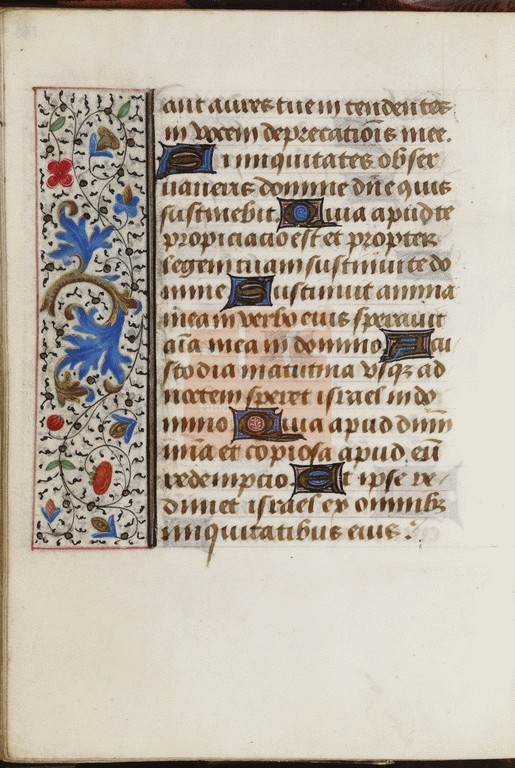 ant aures tue in tendentes
in vocem deprecatiōis mee.
Si iniquitates obser
uaueris domine dn̄e quis
sustinebit. Quia apud te
propiciacio est et propter
legem tuam sustinui te do
mine. Sustinuit anima
mea in verbo eius sperauit
aīa mea in domino. A cu
stodia matutina vsqꝫ ad
noctem speret israel in do
mino. Quia apud dīm
mīa et copiosa apud eū
redemptio. Et ipse re
dimet israel ex omnibꝫ
iniquitatibus eius.